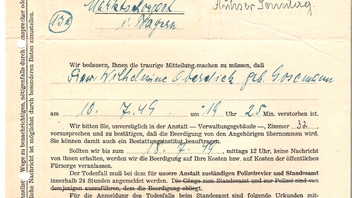 (13a)
Marktschorgast
i. Bayern
Wir bedauern, Ihnen die traurige Mitteilung machen zu müssen, daß
Frau Wilhelmine geb. Gosemann
am 10. 7. 49 um 19 Uhr 25 Min. verstorben ist.
Wir bitten Sie, unverzüglich in der Anstalt — Verwaltungsgebäude — Zimmer 32
vorzusprechen und zu bestätigen, daß die Beerdigung von den Angehörigen übernommen wird.
Sie können damit auch ein Bestattungsinstitut beauftragen.
Sollten wir bis zum 18. 7. 49 mittags 12 Uhr, keine Nachricht
von Ihnen erhalten, werden wir die Beerdigung auf Ihre Kosten bzw. auf Kosten der öffentlichen
Fürsorge veranlassen.
Der Todesfall muß bei dem für unsere Anstalt zuständigen Polizeirevier und Standesamt
innerhalb 24 Stunden angemeldet werden. Die Gänge zum Standesamt und zur Polizei sind von
demjenigen auszuführen, dem die Beerdigung obliegt.
Für die Anmeldung des Todesfalles beim Standesamt sind folgende Urkunden mit-
Wege zu benachrichtigen, nötigenfalls durch
Nachricht ist möglichst durch besonderen Boten zuzustellen.